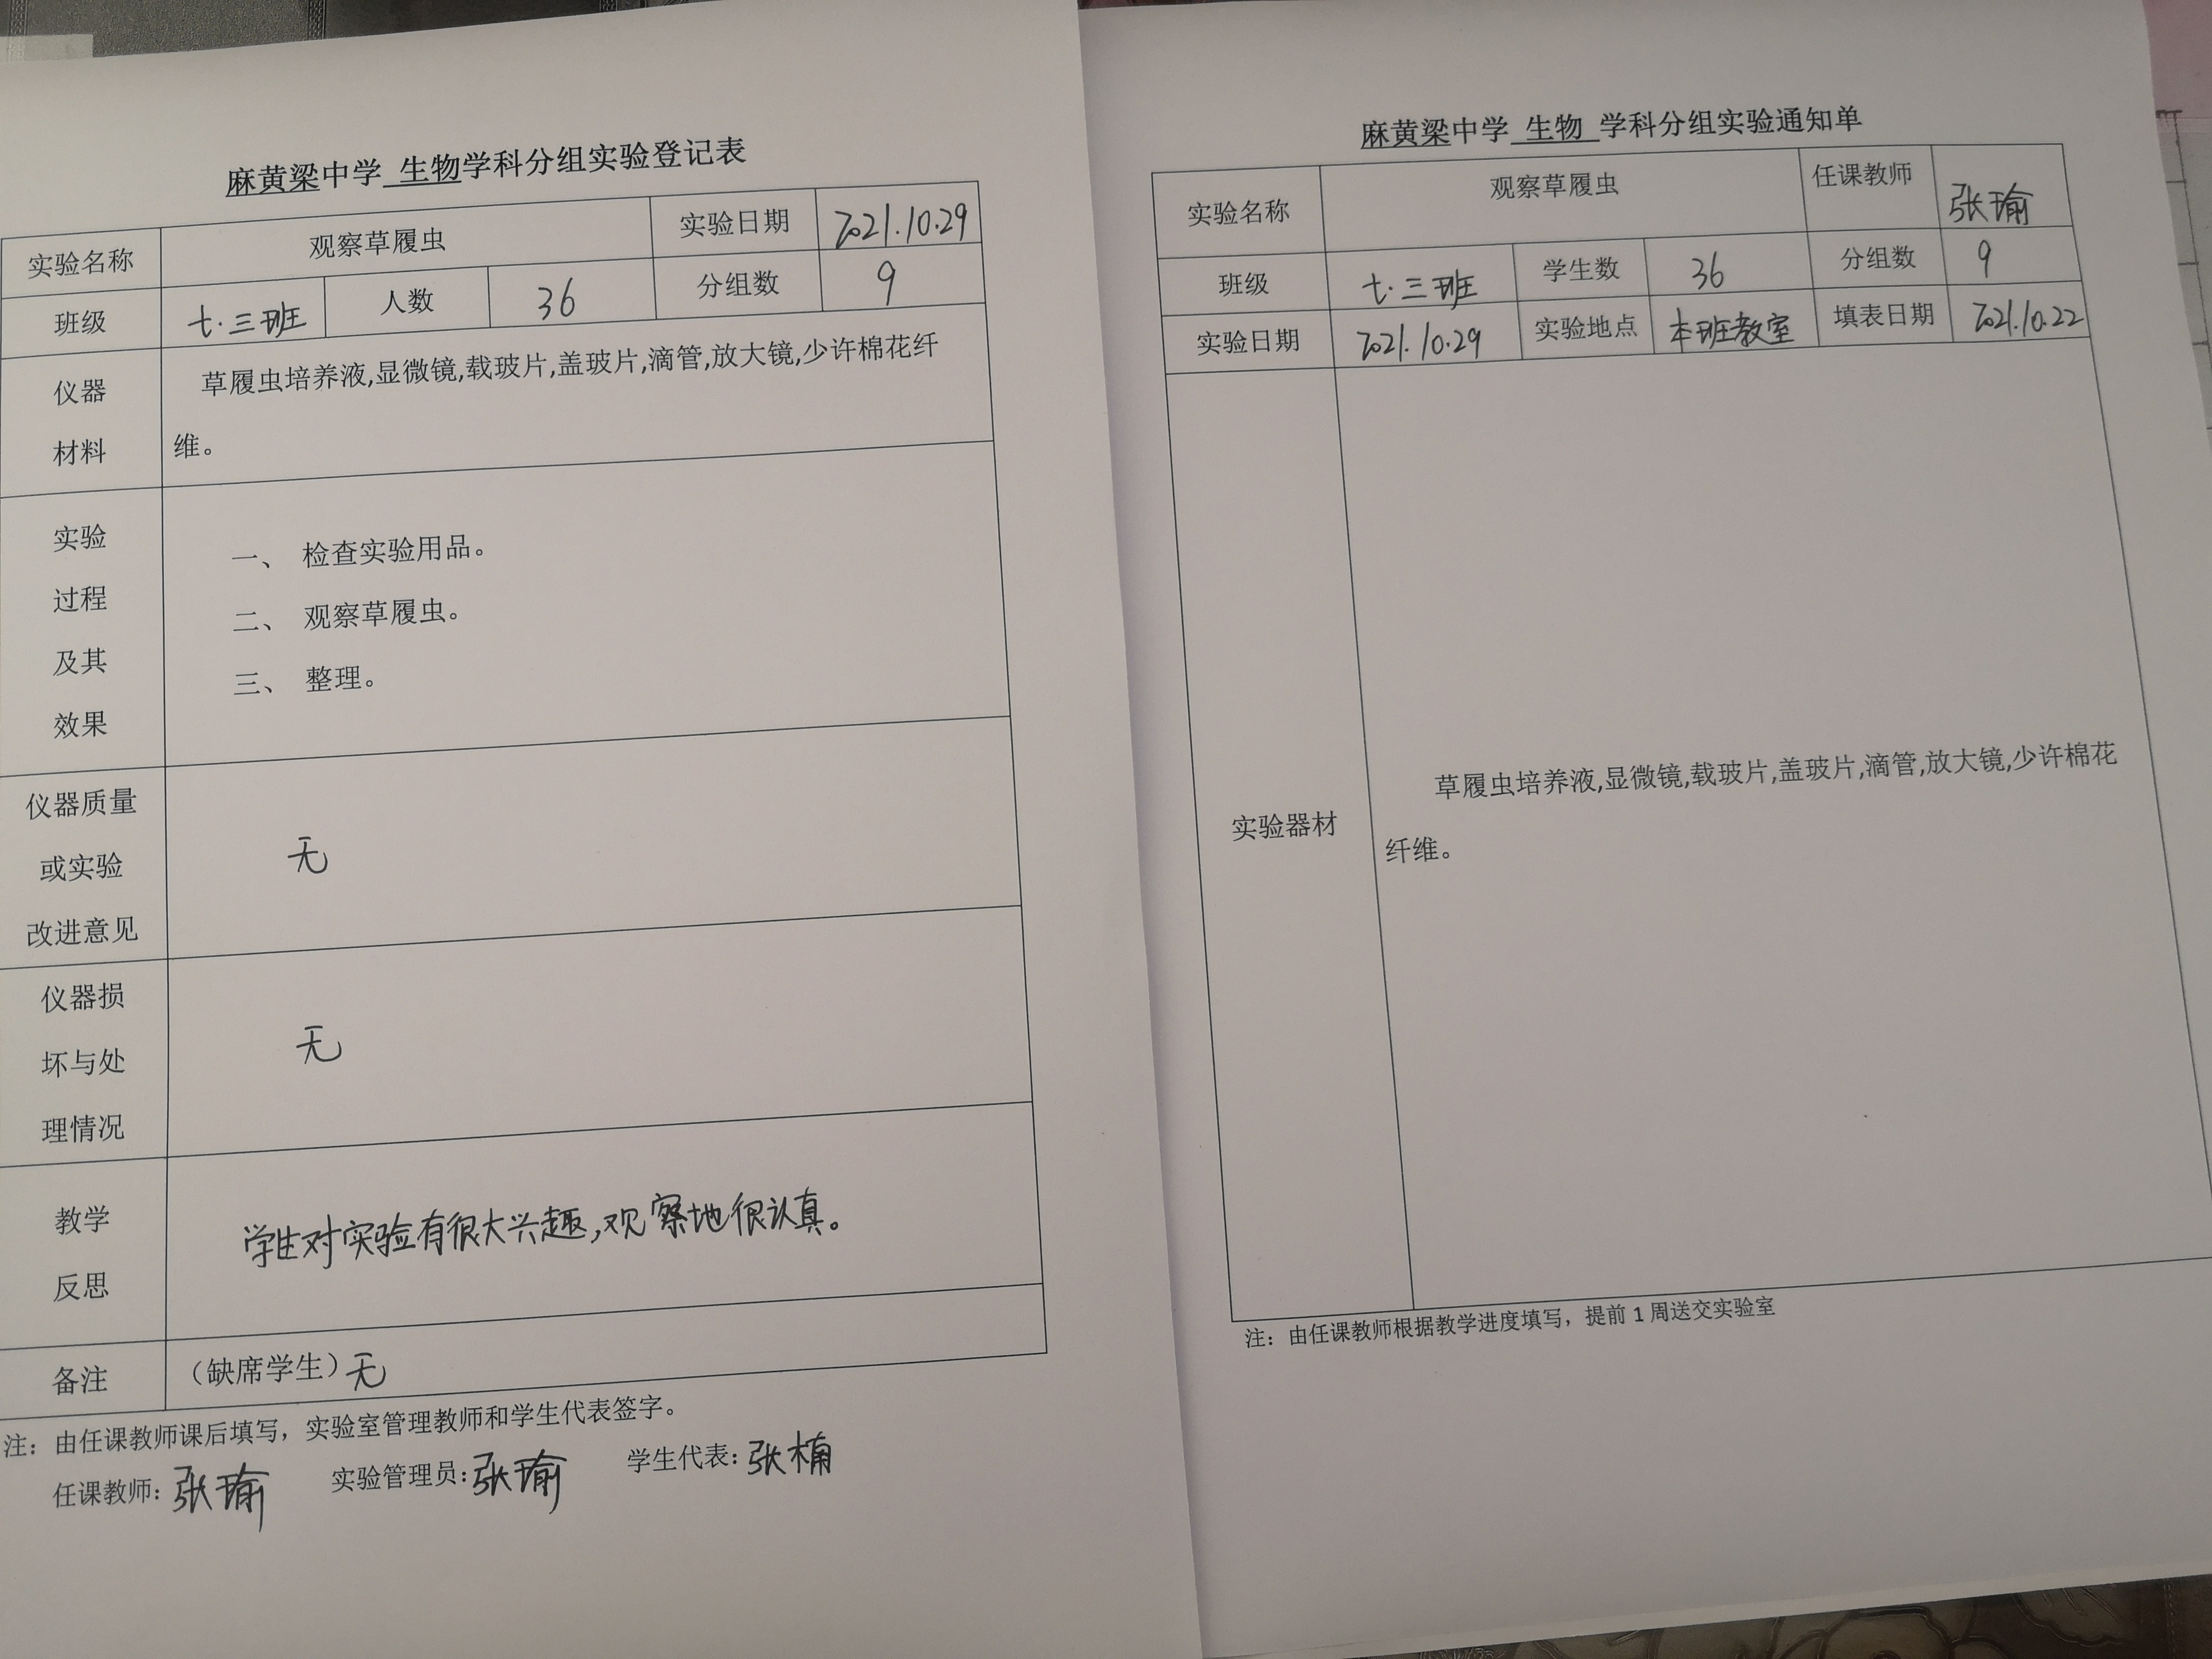 麻黄梁中学 生物学科分组实验登记表
实验名称 观察草履虫 实验日期 2021.10.29
班级 七.三班 人数 36 分组数 9
仪器
材料
草履虫培养液,显微镜,载玻片,盖玻片,滴管,放大镜,少许棉花纤
维。
实验
过程
及其
效果
一、 检查实验用品。
二、 观察草履虫。
三、 整理。
仪器质量
或实验
改进意见
无
仪器损
坏与处
理情况
无
教学
反思
学生对实验有很大兴趣,观察地很认真。
备注 （缺席学生）无
注：由任课教师课后填写，实验室管理教师和学生代表签字。
任课教师：张瑜 实验管理员：张瑜 学生代表：张楠
麻黄梁中学 生物 学科分组实验通知单
实验名称 观察草履虫 任课教师 张瑜
班级 七.三班 学生数 36 分组数 9
实验日期 2021.10.29 实验地点 本班教室 填表日期 2021.10.22
实验器材
草履虫培养液,显微镜,载玻片,盖玻片,滴管,放大镜,少许棉花
纤维。
注：由任课教师根据教学进度填写，提前1周送交实验室